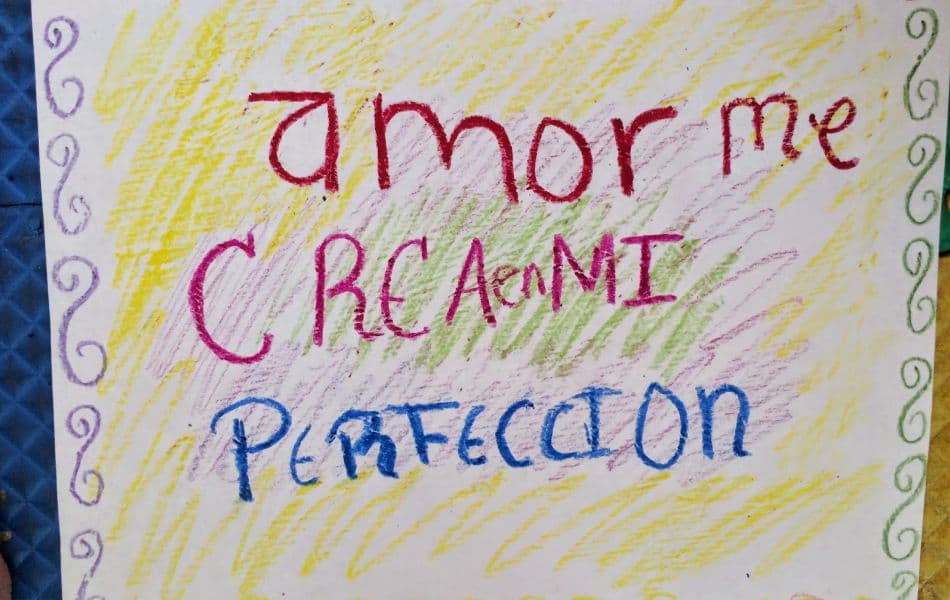 amor me
CREA en MI
PERFECCION